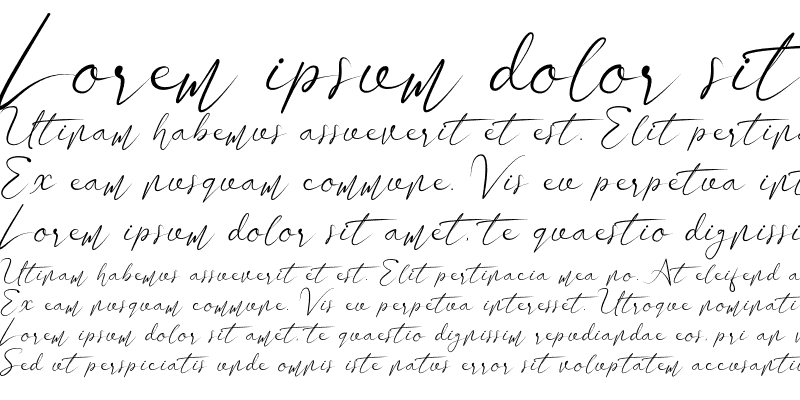 Lorem ipsum dolor sit
Utinam habemus assueverit et est. Elit pertina
Ex eam nusquam commune. Vis eu perpetua int
Lorem ipsum dolor sit amet, te quaestio dignissi
Utinam habemus assueverit et est. Elit pertinacia mea no. At eleifend a
Ex eam nusquam commune. Vis eu perpetua interesset. Utroque nominati
Lorem ipsum dolor sit amet, te quaestio dignissim repudiandae eos, pri an v
Sed ut perspiciatis unde omnis iste natus error sit voluptatem accusantiu